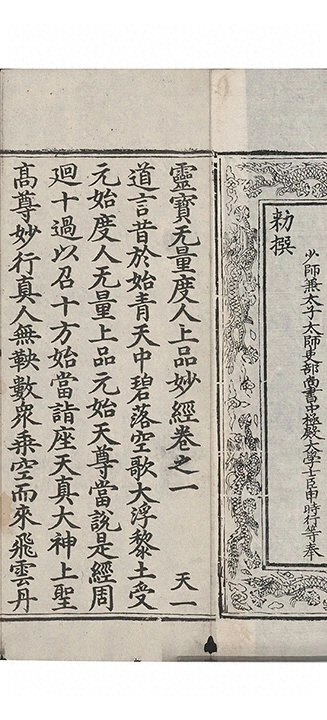 少師兼太子太師吏部尚書中極殿大學士臣申時行等奉
勑撰
靈寶无量度人上品妙經卷之一 天一
道言昔於始青天中碧落空歌大浮黎土受
元始度人无量上品元始天尊當說是經周
迴十過以召十方始當詣座天真大神上聖
髙尊妙行真人無鞅數衆乘空而來飛雲丹